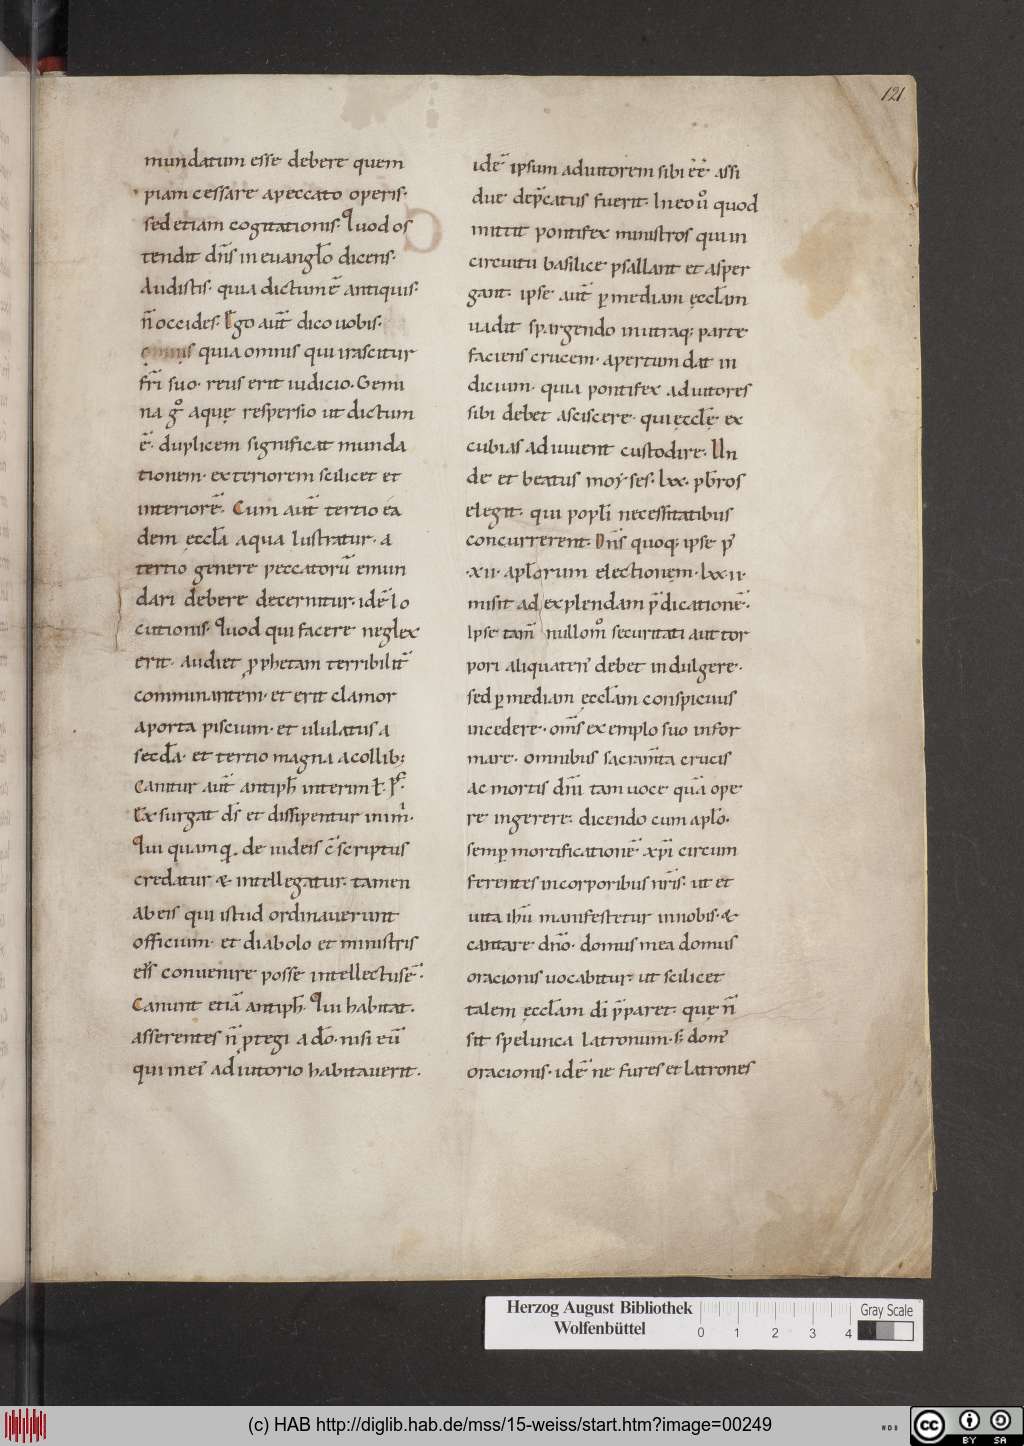 121
mundatum esse debere quem
piam cessare apeccato operis·
sed etiam cogitationis· Quod os
tendit dn̄s in euanglo dicens·
Audistis· quia dictum ē antiquis·
n̄ occides· Ego aut̄ dico uobis·
omnis quia omnis qui irascitur
fr̄i suo· reus erit iudicio· Gemi
na gͦ aquę respersio ut dictum
ē· duplicem significat munda
tionem· exteriorem scilicet et
interiorē· Cum aut̄ tertio ea
dem ęccła aqua lustratur· a
tertio genere peccatorū emun
dari debere decernitur· idē lo
cutionis· Quod qui facere neglex
erit· audiet ꝓphetam terribilit̄
comminantem· et erit clamor
aporta piscium· et ululatus a
secda· et tertio magna acollib;
Canitur aut̄ antiph̄ interim ł· ps̄·
Exsurgat ds̄ et dissipentur inim̄·
Qui quamq̣ de iudeis c̄scriptus
credatur & intellegatur· tamen
ab eis qui istud ordinauerunt
officium· et diabolo et ministris
ei᷒ conuenire posse intellectus ē·
Canunt etiā antiph̄· Qui habitat·
asserentes n̄ ꝓtegi a dō· nisi eū
qui in ei᷒ adiutorio habitauerit·
idē ipsum adiutorem sibi ēē assi
due dep̄catus fuerit· In eo ů quod
mittit pontifex ministros qui in
circuitu basilice psallant et asper
gant· ipse aut̄ ꝑ mediam ęccłam
uadit spargendo in utraq; parte
faciens crucem· apertum dat in
dicium· quia pontifex adiutores
sibi debet asciscere· qui ęcclę ex
cubias adiuuent custodire· Un
de et beatus moẏses· lxx· pb̄ros
elegit· qui popłi necessitatibus
concurrerent· Dn̄s quoq; ipse p᷒
·xii· apłorum electionem· lxxii·
misit ad explendam p̄dicationē·
Ipse tam̄ nullomͦ securitati aut tor
pori aliquaten᷒ debet indulgere·
sed ꝑ mediam ęccłam conspicuus
incedere· om̄s exemplo suo infor
mare· omnibus sacram̄ta crucis
ac mortis dn̄i tam uoce quā ope
re ingerere· dicendo cum apło·
semꝑ mortificationē xp̄i circum
ferentes in corporibus nr̄is· ut et
uita ih̄u manifestetur in nobis· &
cantare dn̄o· domus mea domus
orationis uocabitur· ut scilicet
talem ęccłam dī p̄paret· quę n̄
sit spelunca latronum· s; dom᷒
orationis· idē ne fures et latrones
Herzog August Bibliothek
Wolfenbüttel
0 1 2 3 4
Gray Scale
(c) HAB http://diglib.hab.de/mss/15-weiss/start.htm?image=00249
cc BY SA